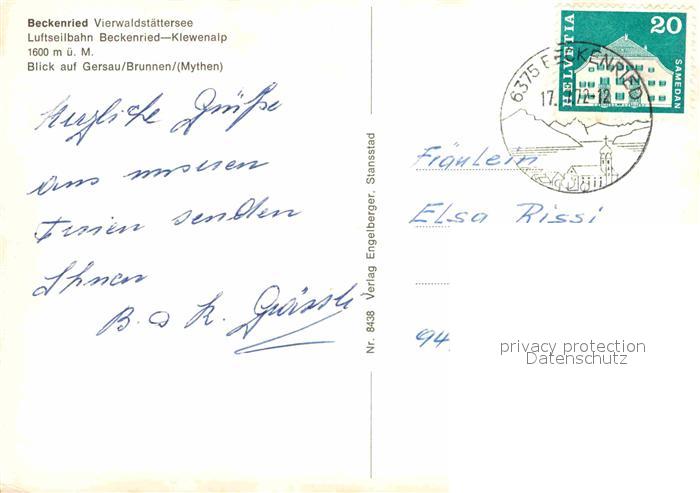 Beckenried Vierwaldstättersee
Luftseilbahn Beckenried—Klewenalp
1600 m ü. M.
Blick auf Gersau/Brunnen/(Mythen)
Herzliche Grüße
aus unseren
Ferien senden
Ihnen
B. d R.
Nr. 8438 Verlag Engelberger, Stansstad
HELVETIA
20
SAMEDAN
6375 BECKENRIED
17. 72-12
Fräulein
Elsa Rissi
94
privacy protection
Datenschutz